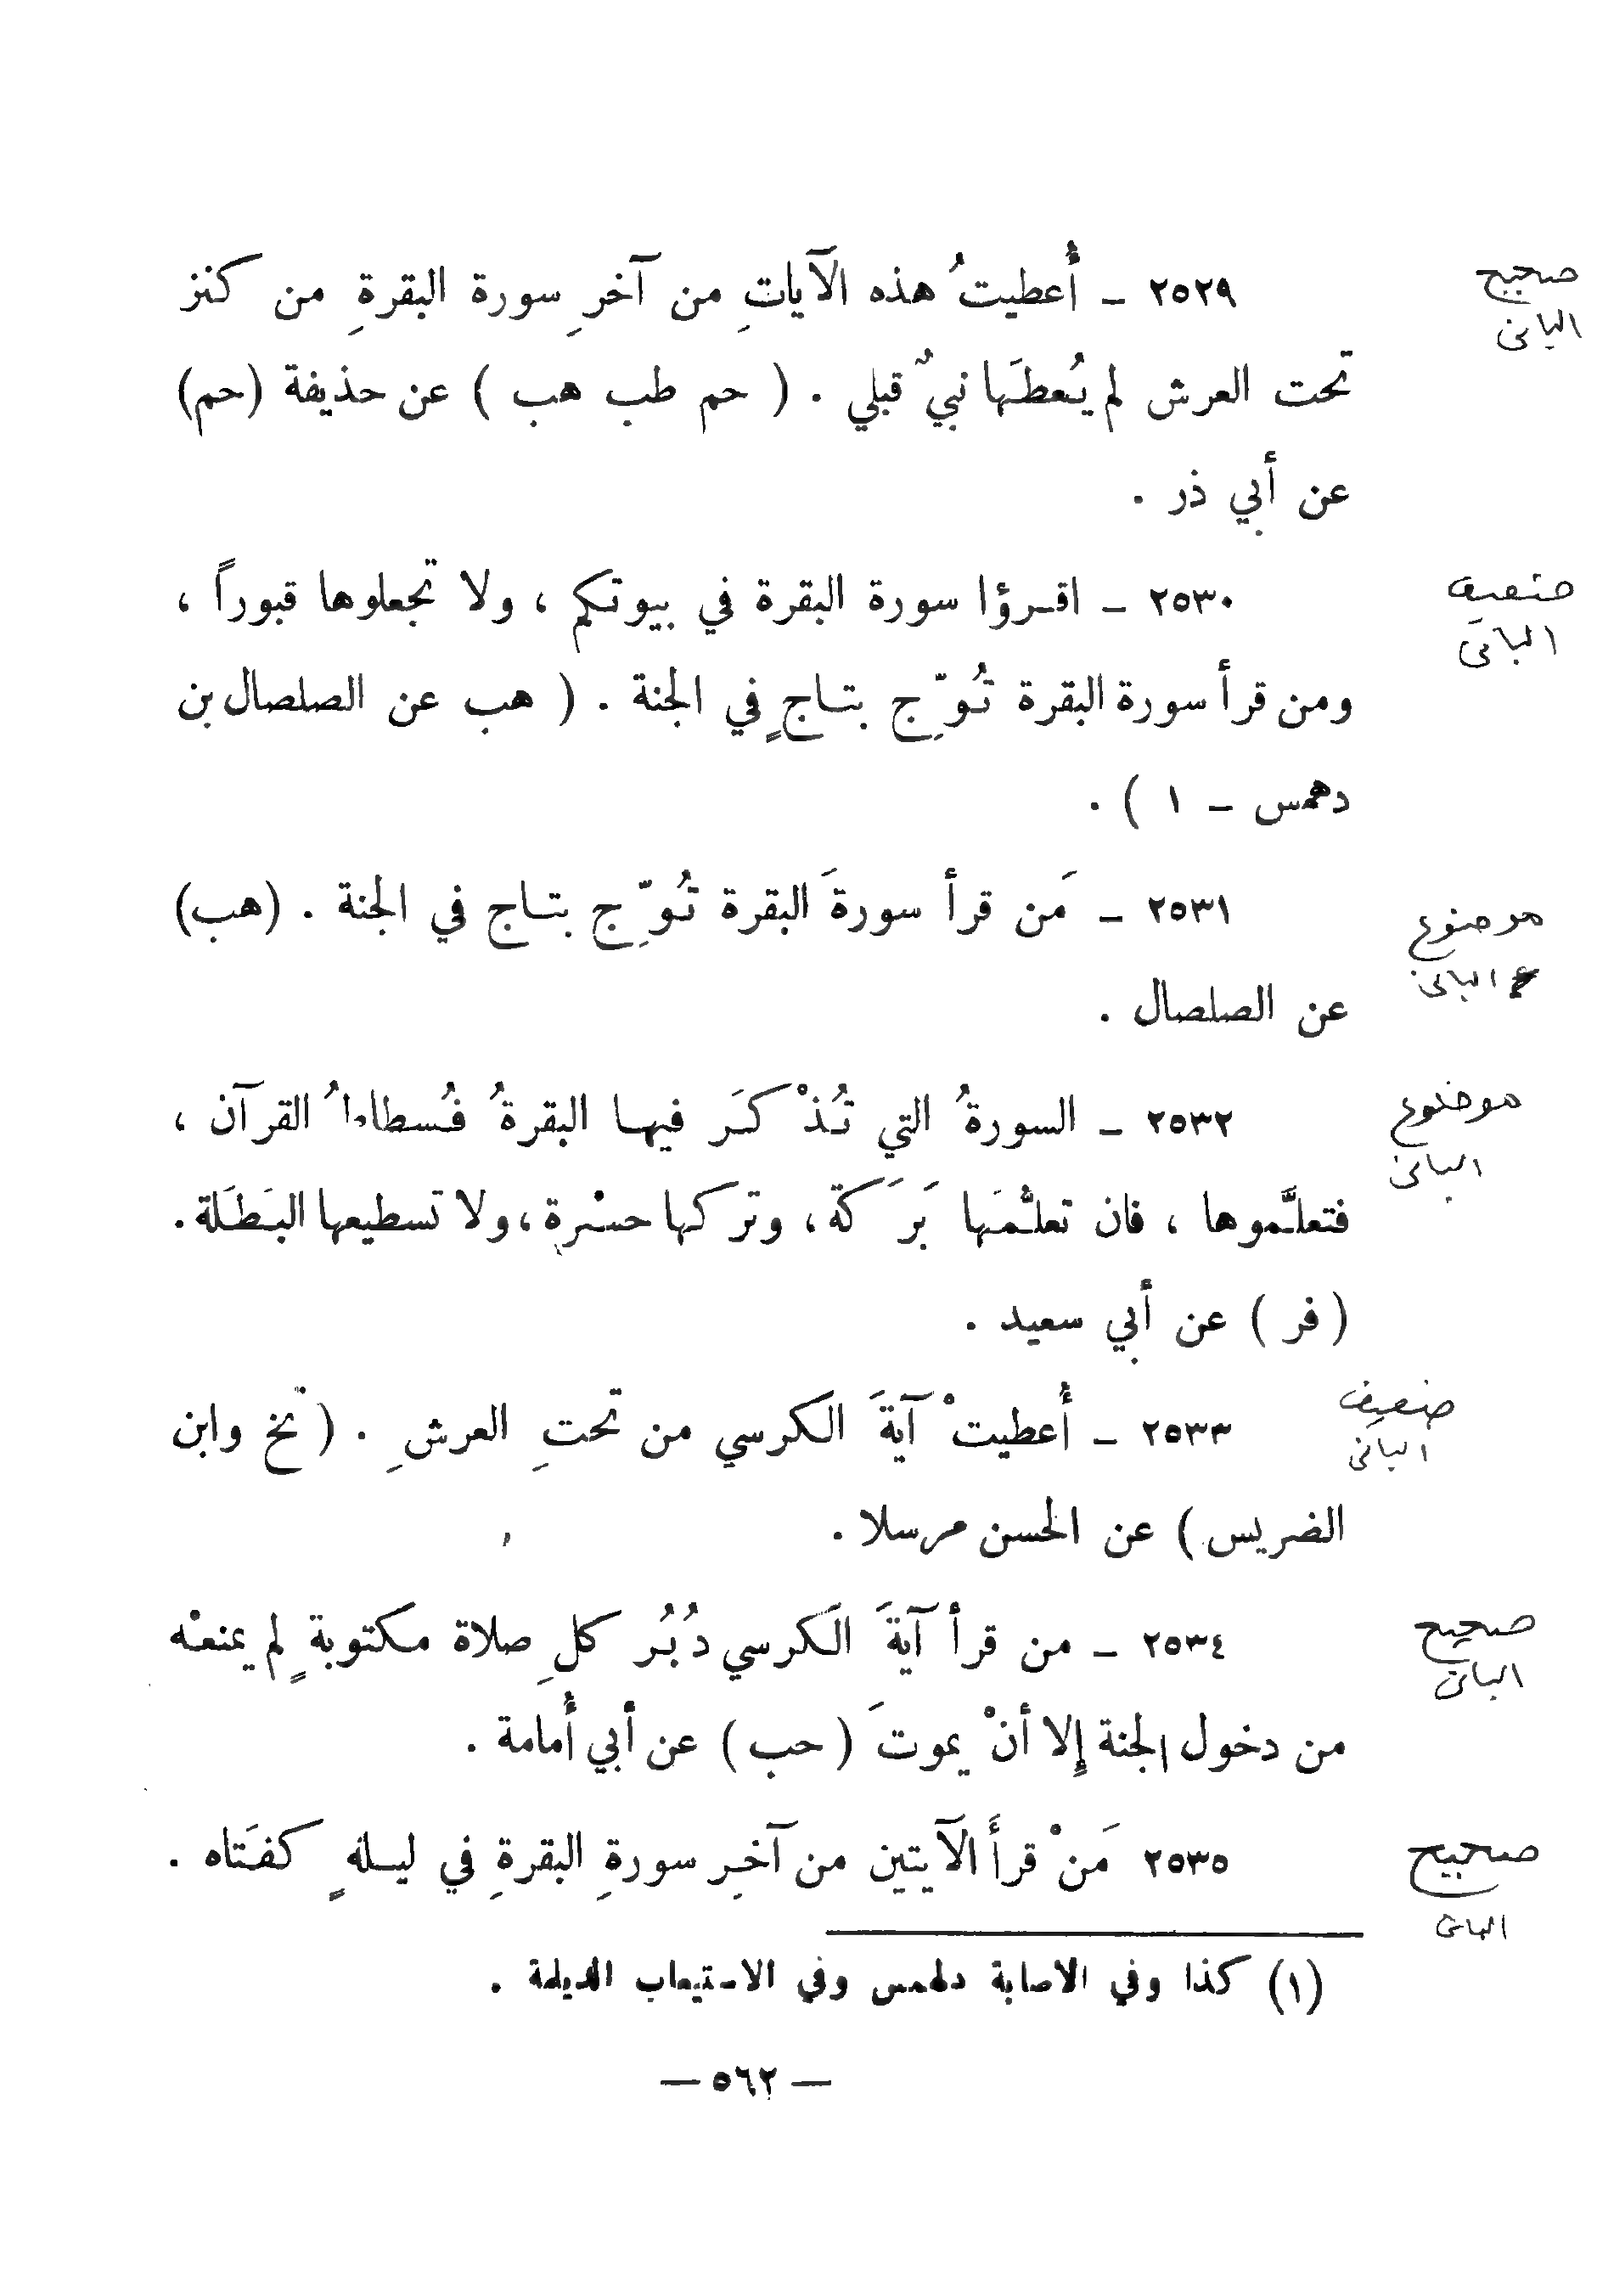 صحيح
البانى
٢٥٢٩ - أُعطيتُ هذه الآياتِ من آخرِ سورة البقرةِ من كنز
تحت العرش لم يُعطَها نبيٌ قبلي . ( حم طب هب ) عن حذيفة (حم)
عن أبي ذر .
ضعيف
البانى
٢٥٣٠ - اقرؤا سورة البقرة في بيوتكم ، ولا تجعلوها قبوراً ،
ومن قرأ سورة البقرة تُوِّج بتاجٍ في الجنة . ( هب عن الصلصال بن
دهمس - ١ ) .
موضوع
البانى
٢٥٣١ - مَن قرأ سورةَ البقرة تُوِّج بتاج في الجنة . (هب)
عن الصلصال .
موضوع
البانى
٢٥٣٢ - السورةُ التي تُذْكَر فيها البقرةُ فُسطاطُ القرآن ،
فتعلَّموها ، فان تعلُّمَها بَرَكة ، وتركها حسْرة ، ولا تسطيعها البَطَلة .
( فر ) عن أبي سعيد .
ضعيف
البانى
٢٥٣٣ - أُعطيتْ آيةَ الكرسي من تحتِ العرشِ . ( تخ وابن
الضريس ) عن الحسن مرسلا .
صحيح
البانى
٢٥٣٤ - من قرأ آيةَ الكرسي دُبُر كلِ صلاة مكتوبةٍ لم يمنعْه
من دخول الجنة إلا أنْ يموتَ ( حب ) عن أبي أُمامة .
صحيح
البانى
٢٥٣٥ مَنْ قرأَ الآيتين من آخِر سورةِ البقرةِ في ليلةٍ كفَتاه .
(١) كذا وفي الاصابة دلهمس وفي الاستيعاب الديلمة .
— ٥٦٢ —